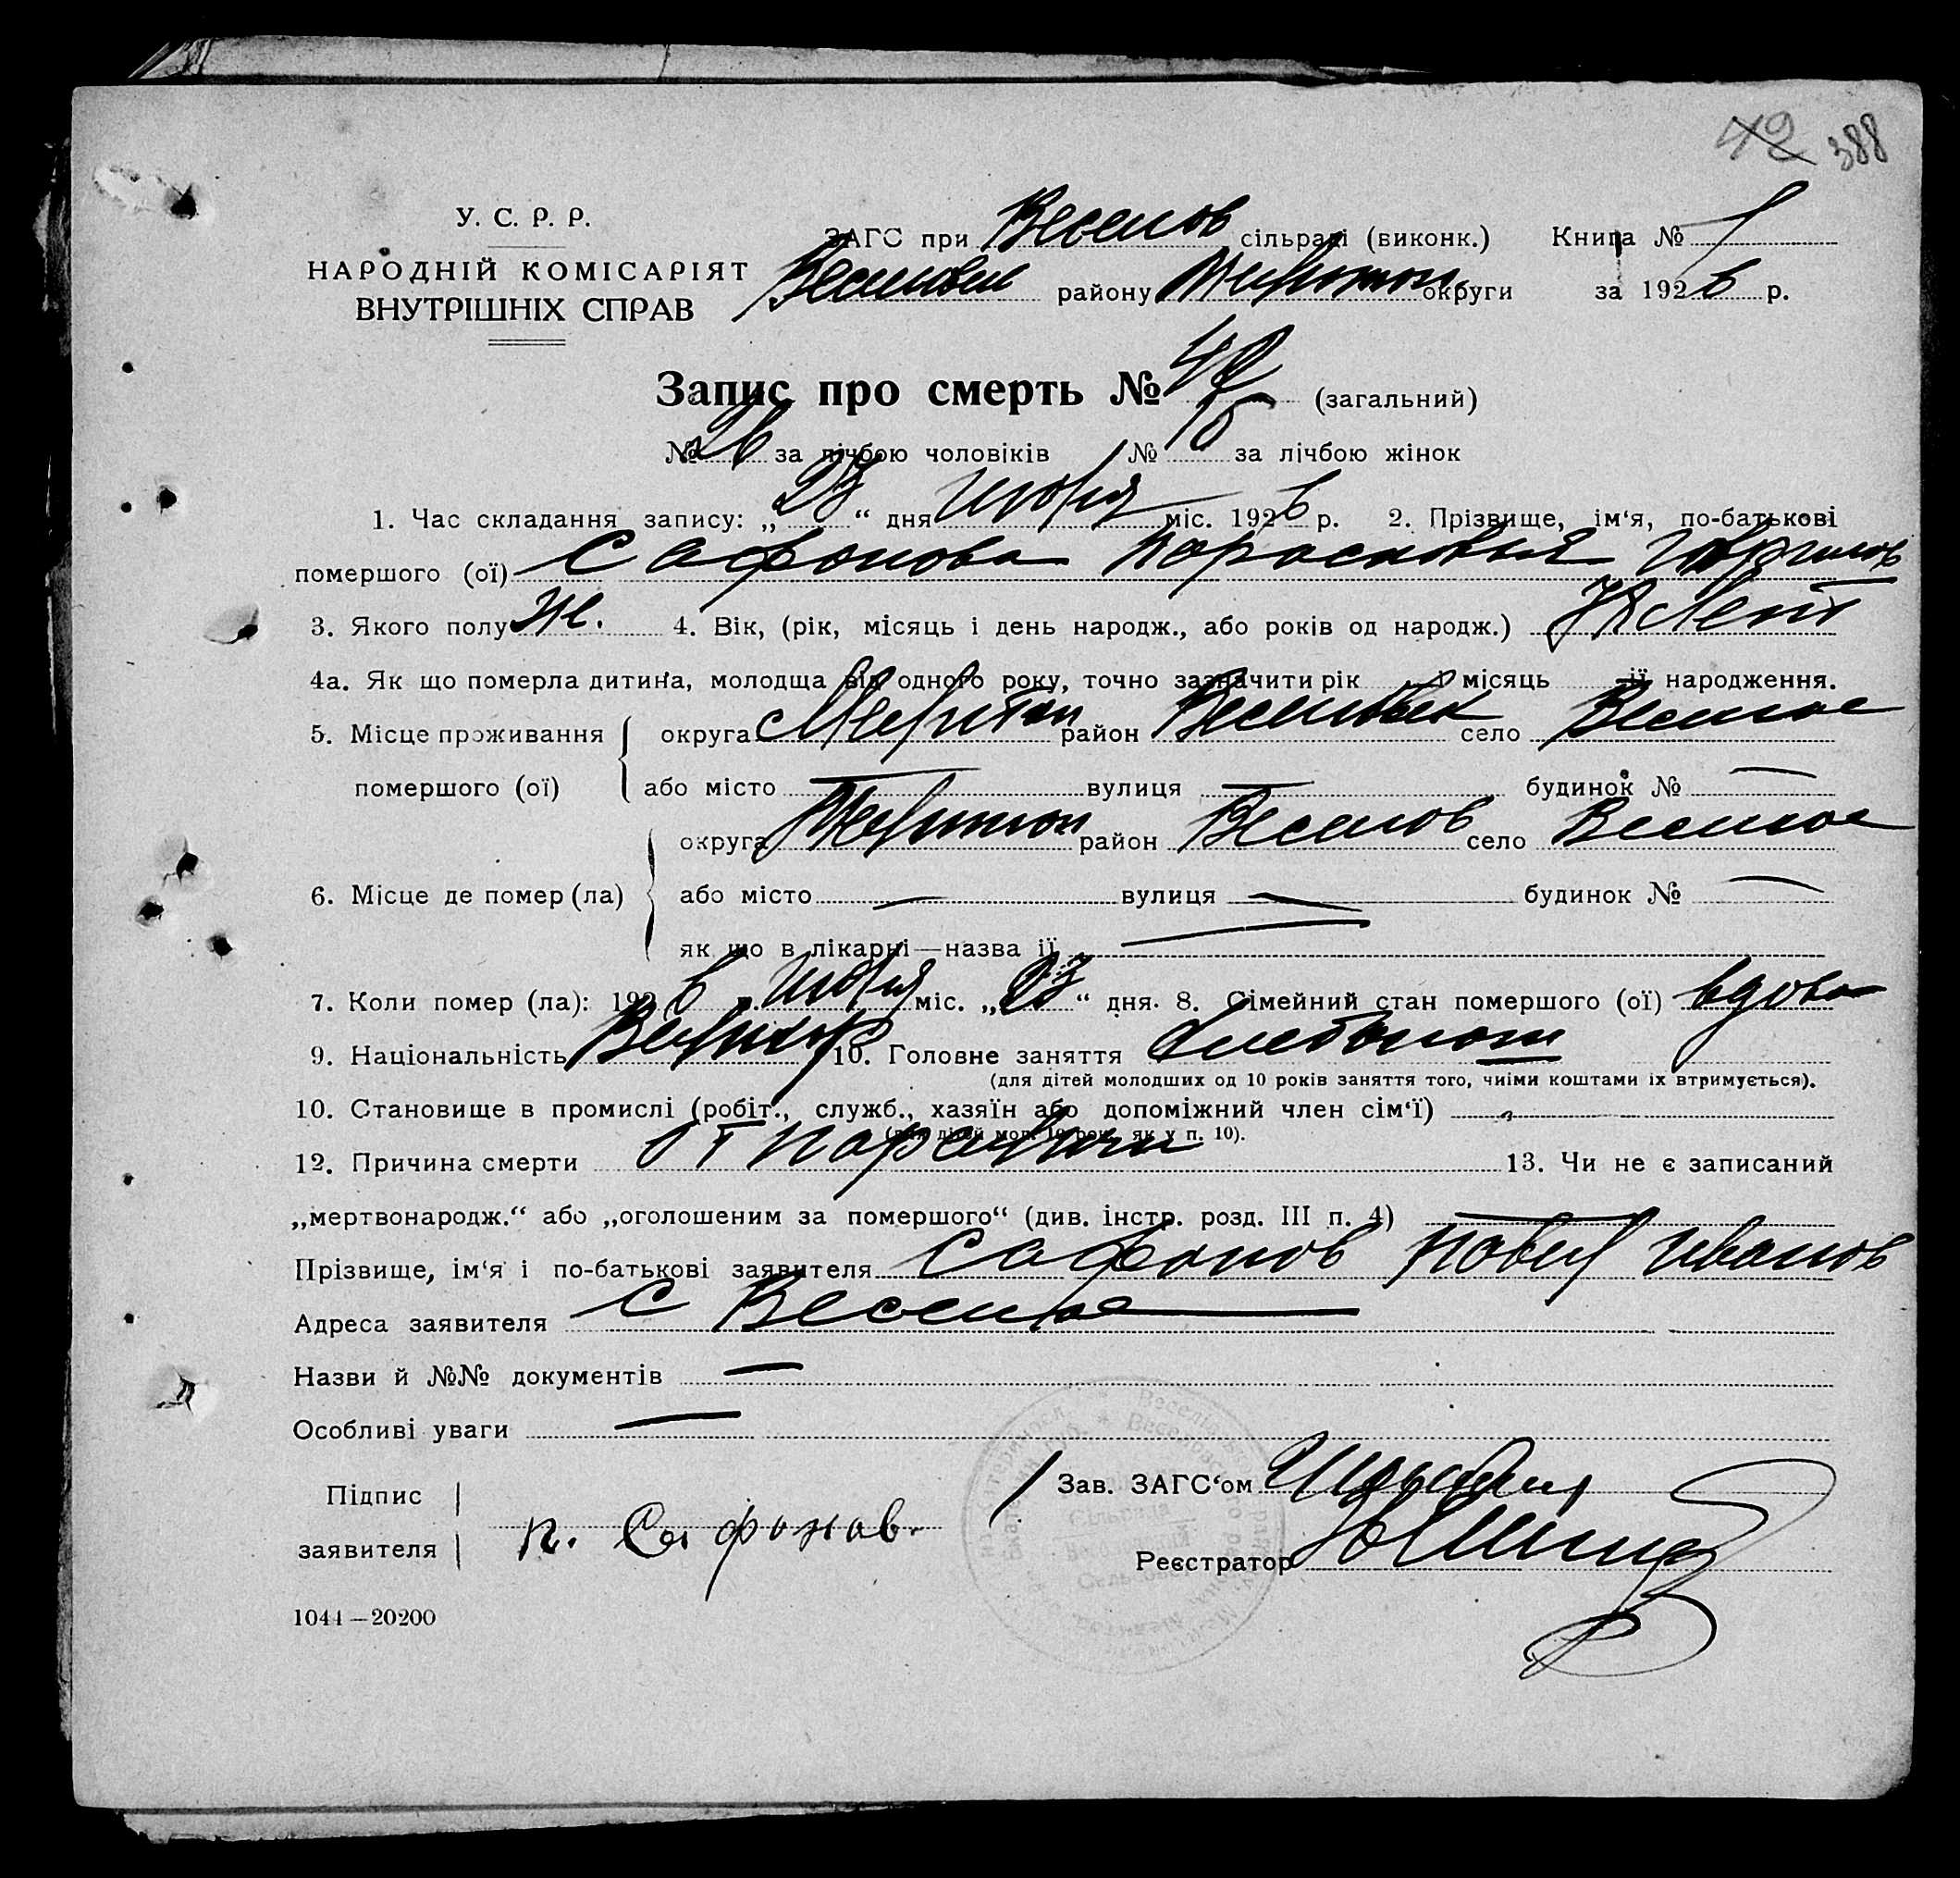 42 388
У. С. Р. Р.
НАРОДНІЙ КОМІСАРІЯТ
ВНУТРІШНІХ СПРАВ
ЗАГС при Веселов сільраді (виконк.) Книга № 1
району Мелитоп округи за 1926 р.
Запис про смерть № 42 (загальний)
№ 26 за лічбою чоловіків № за лічбою жінок
1. Час складання запису: „23“ дня міс. 1926 р. 2. Прізвище, ім‘я, по-батькові
помершого (ої) Сафонова Парасковья Гаврилов
3. Якого полу Ж. 4. Вік, (рік, місяць і день народж., або років од народж.) лет
4а. Як що померла дитина, молодща від одного року, точно зазначити рік і місяць її народження.
5. Місце проживання округа Мелитоп район село Веселое
помершого (ої) або місто — вулиця — будинок № —
округа Мелитоп район Веселов село Веселое
6. Місце де помер (ла) або місто — вулиця — будинок № —
як що в лікарні—назва її —
7. Коли помер (ла): 1926 міс. „23“ дня. 8. Сімейний стан помершого (ої) вдова
9. Національність Великор 10. Головне заняття Хлебопаш
(для дітей молодших од 10 років заняття того, чиїми коштами їх втримується).
10. Становище в промислі (робіт., служб., хазяїн або допоміжний член сім‘ї) „
(для дітей мол. 10 рок. як у п. 10).
12. Причина смерти от паралича 13. Чи не є записаний
„мертвонародж.“ або „оголошеним за помершого“ (див. інстр. розд. III п. 4) —
Прізвище, ім‘я і по-батькові заявителя Сафонов Павел Иванов
Адреса заявителя с Веселое
Назви й №№ документів —
Особливі уваги —
Підпис
заявителя п. Сафонов.
Зав. ЗАГС‘ом
Реєстратор
1044—20200